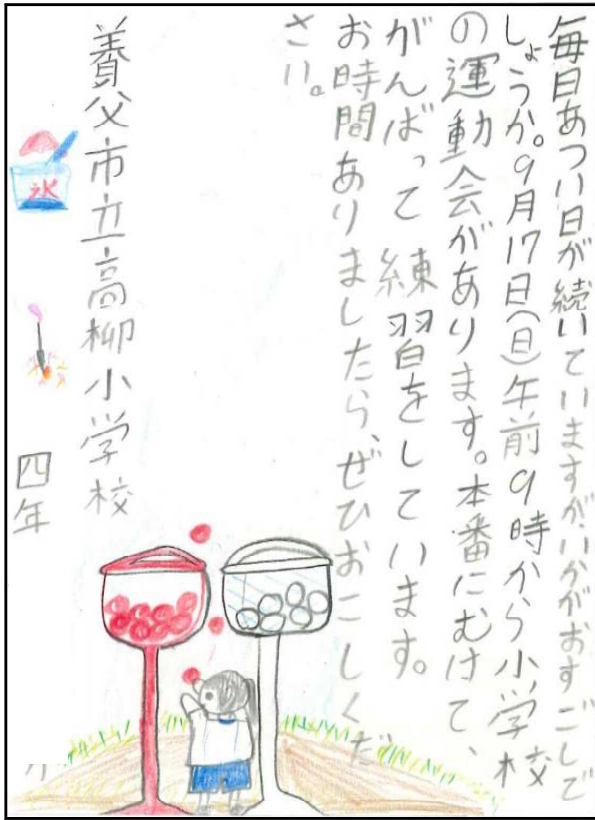 毎日あつい日が続いていますが、いかがおすごしで
しょうか。9月17日(日)午前9時から小学校
の運動会があります。本番にむけて、
がんばって練習をしています。
お時間ありましたら、ぜひおこしくだ
さい。
養父市立高柳小学校
四年
氷